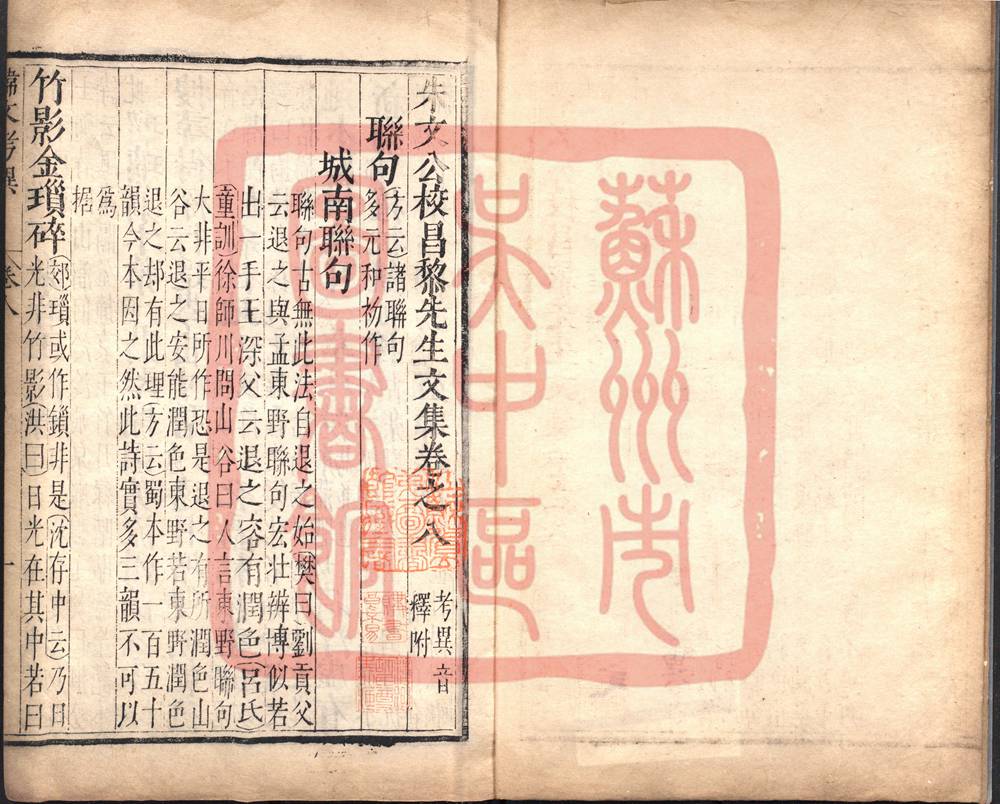 蘇州市
吳中區
圖書館
朱文公校昌黎先生文集卷之八
考異音
釋附
聯句
方云諸聯句
多元和初作
城南聯句
聯句古無此法自退之始樊曰劉貢父
云退之與孟東野聯句宏壯辨博似若
出一手王深父云退之容有潤色呂氏
童訓徐師川問山谷曰人言東野聯句
大非平日所作恐是退之有所潤色山
谷云退之安能潤色東野若東野潤色
退之却有此理方云蜀本作一百五十
韻今本因之然此詩實多三韻不可以
爲
據
竹影金瑣碎
郊瑣或作鎖非是沈存中云乃日
光非竹影洪曰日光在其中若曰
韓文考異 卷八 一